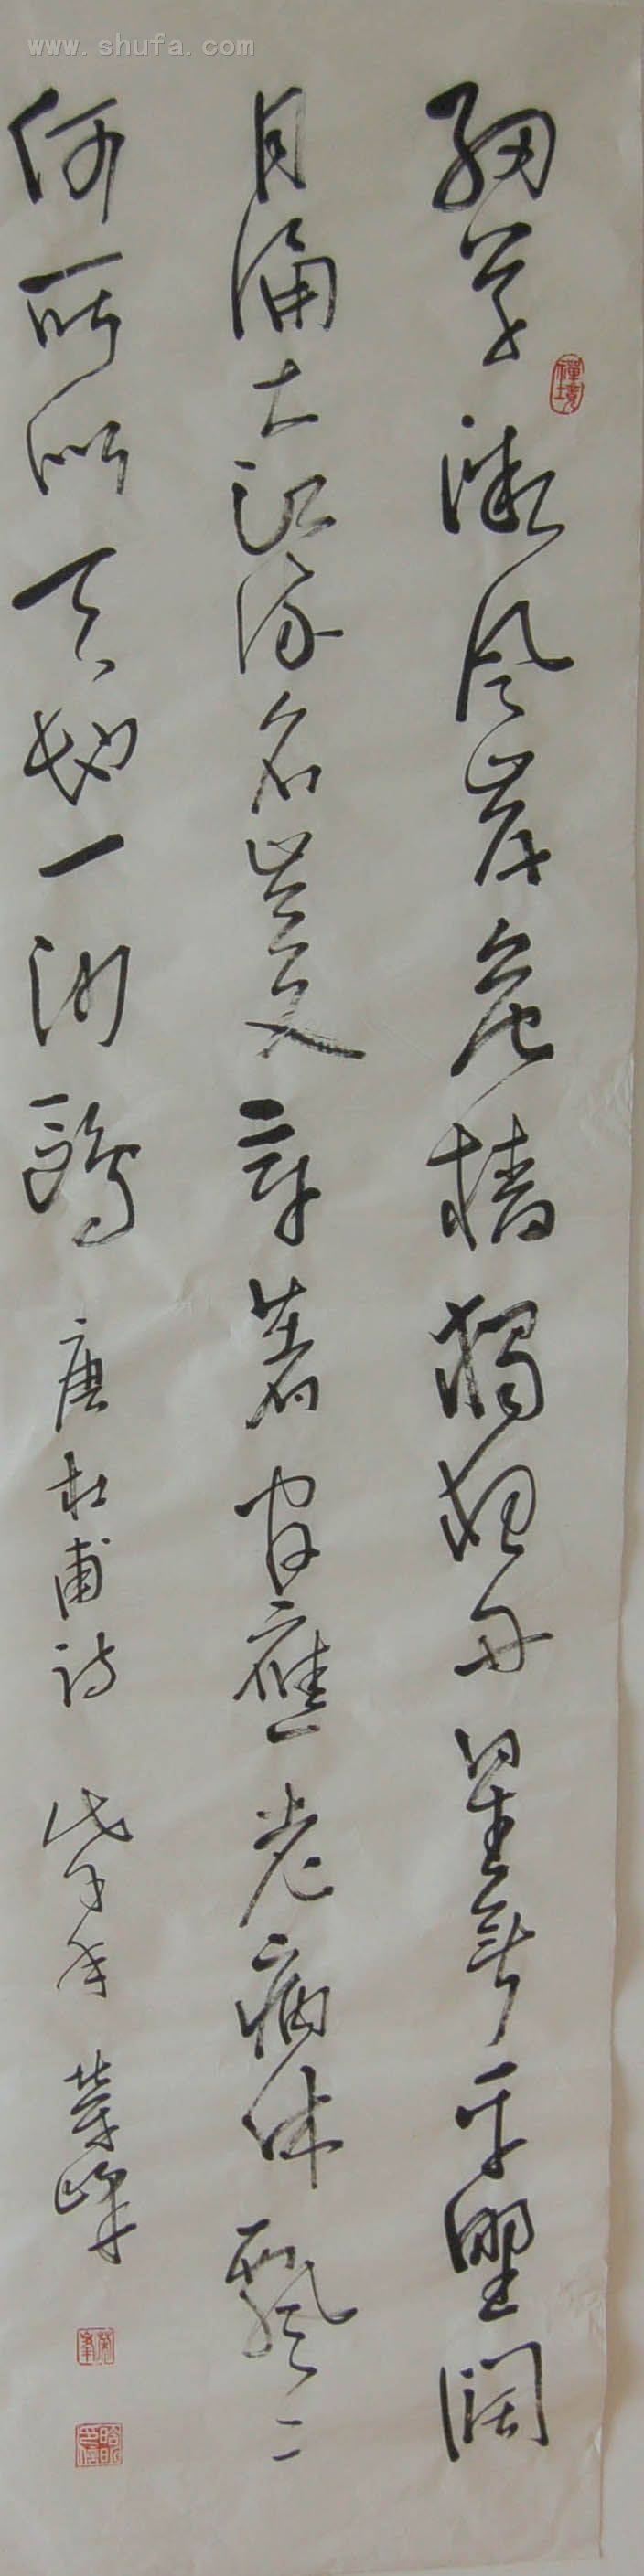 www.shufa.com
細草微风岸危檣獨夜舟星垂平野阔
禪境
月涌大江流名豈文章著官應老病休飘二
何所似天地一沙鷗 唐杜甫诗 戊子年 峰